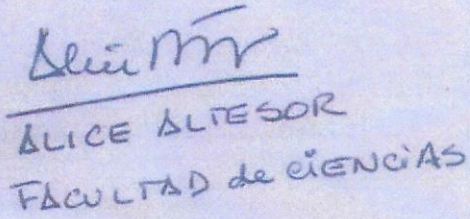 ALICE ALTESOR
FACULTAD de CIENCIAS